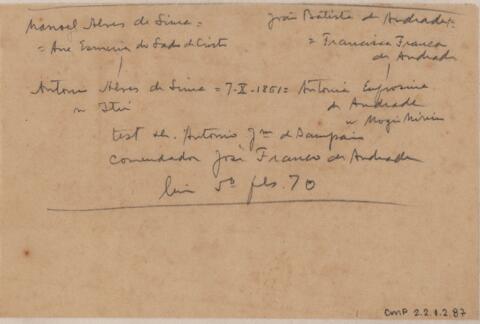 Manoel Alves de Lima =
= Ana Esmeria do Lado de Cristo
João Batista de Andrade =
= Francisca Franco
de Andrade
Antonio Alves de Lima = 7-X-1861 = Antonia Eufrosina
de Andrade
n Itú
n Mogi Mirim
test dr. Antonio Jm de Sampaio
comendador José Franco de Andrade
liv 5º fls. 70
CMP 2.2.1.2.87